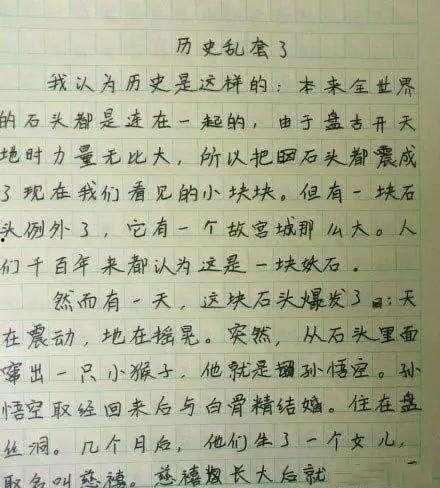 历史乱套了
我认为历史是这样的：本来全世界
的石头都是连在一起的，由于盘古开天
地时力量无比大，所以把石头都震成
了现在我们看见的小块块。但有一块石
头例外了，它有一个故宫城那么大。人
们千百年来都认为这是一块妖石。
然而有一天，这块石头爆发了：天
在震动，地在摇晃。突然，从石头里面
窜出一只小猴子，他就是孙悟空。孙
悟空取经回来后与白骨精结婚。住在盘
丝洞。几个月后，他们生了一个女儿，
取名叫慈禧。慈禧长大后就